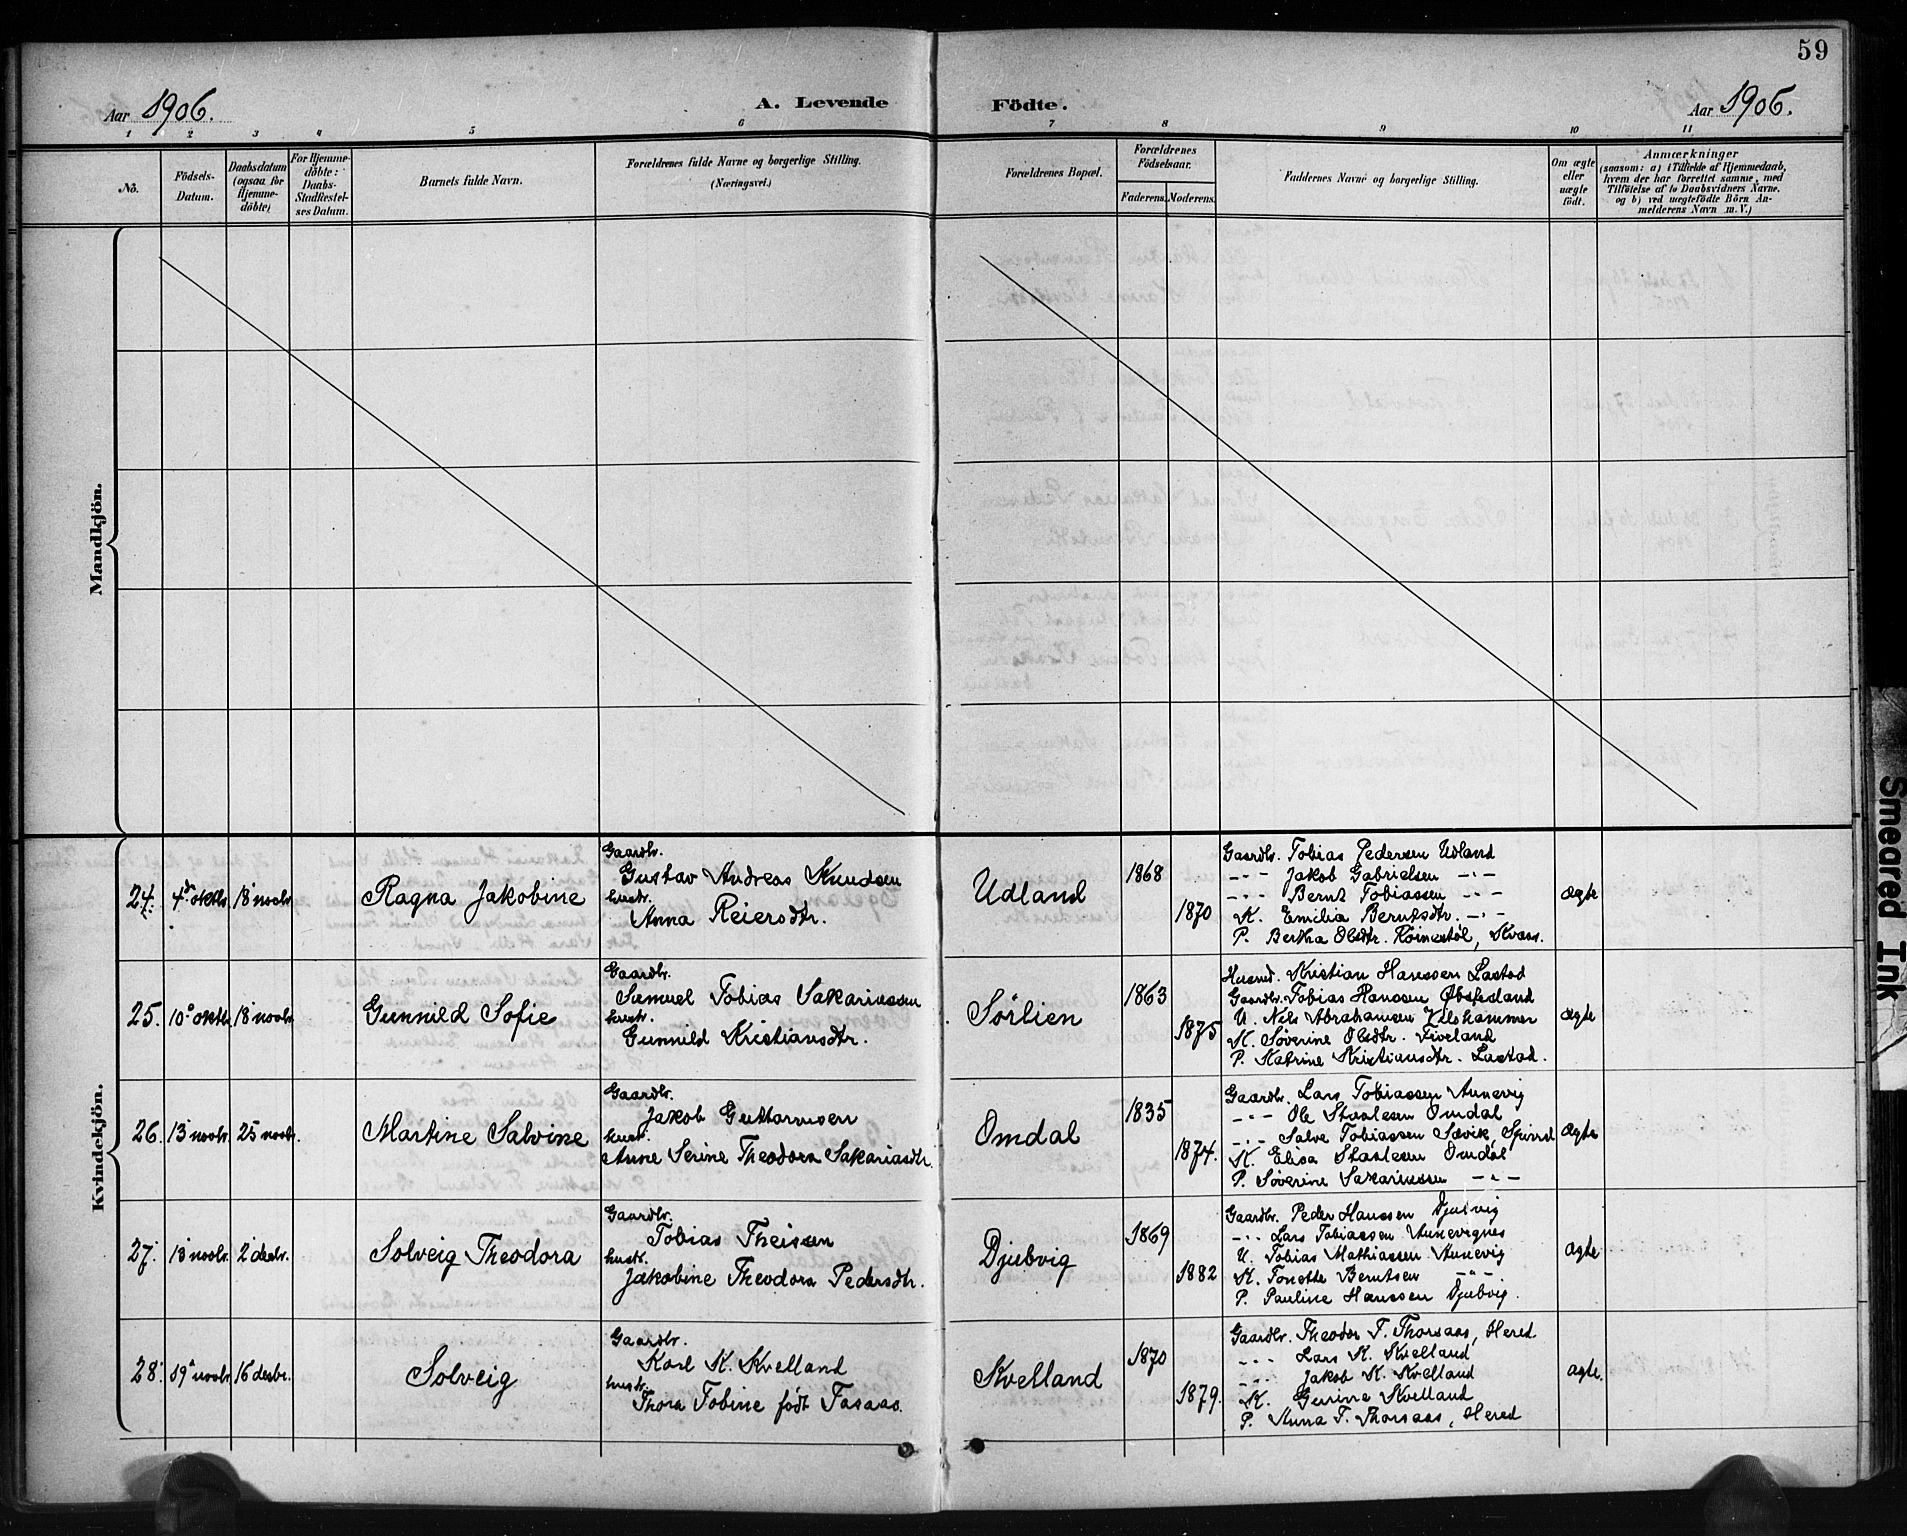 59
Aar 1906.
A. Levende
Födte.
Aar 1906.
1 2 3 4 5 6 7 8 9 10 11
No.
Födsels-
Datum.
Daabsdatum
(ogsaa for
Hjemme-
döbte)
For Hjemme-
döbte:
Daabs-
Stadfæstel-
ses Datum.
Barnets fulde Navn.
Forældrenes fulde Navne og borgerlige Stilling.
(Næringsvei.)
Forældrenes Bopæl.
Forældrenes
Födselsaar.
Faderens.
Moderens.
Faddernes Navne og borgerlige Stilling.
Om ægte
eller
uægte
födt.
Anmærkninger
(saasom: a) i Tilfælde af Hjemmedaab,
hvem der har forrettet samme, med
Tilföielse af to Daabsvidners Navne,
og b) ved uægtefödte Börn An-
melderens Navn m. V.)
Mandkjön.
Kvindekjön.
24.
4de oktbr.
18 novbr.
Ragna Jakobine
Gaardbr.
Gustav Andreas Knudsen
hustr.
Anna Reiersdtr.
Udland
1868
1870
Gaardbr. Tobias Pedersen Udland
-"- Jakob Gabrielsen -"-
-"- Bernt Tobiassen -"-
K. Emilia Berntsdtr. -"-
P. Bertha Olsdtr. , Kvaas.
ægte
25.
10 oktbr.
18 novbr.
Gunnild Sofie
Gaardbr.
Samuel Tobias Sakariassen
hustr.
Gunnild Kristiansdtr.
Sørlien
1863
1875
Husmd. Kristian Hanssen Lastad
Gaardbr. Tobias Hanssen
U. Nils Abrahamsen
K. Søverine Olsdtr. Fiveland
P. Katrine Kristiansdtr. Lastad.
ægte
26.
13 novbr.
25 novbr.
Martine Salvine
Gaardbr.
Jakob Guttormsen
hustr.
Anne Serine Theodora Sakariasdtr.
Omdal
1835
1874.
Gaardbr. Lars Tobiassen Aunevig
-"- Ole Staalesen Omdal
-"- Salve Tobiassen Sævik,
K. Elisa Staalesen Omdal
P. Søverine Sakariassen -"-
ægte
27.
13 novbr.
2 desbr.
Solveig Theodora
Gaardbr.
Tobias Theisen
hustr.
Jakobine Theodora Pedersdtr.
Djubvig
1869
1882
Gaardbr. Peder Hanssen Djubvig
-"- Lars Tobiassen
U. Tobias Mathiassen Aunevig
K. Tonette Berntsen -"-
P. Pauline Hanssen Djubvig.
ægte
28.
19 novbr.
16 desbr.
Solveig
Gaardbr.
Karl K. Kvelland
hustr.
Thora Tobine født Tasaas.
Kvelland
1870
1879.
Gaardbr. Theodor T. Thorsaas, Hered.
-"- Lars K. Kvelland
-"- Jakob K. Kvelland
K. Gurine Kvelland
P. Anna T. Thorsaas, Hered
ægte.
Smeared Ink